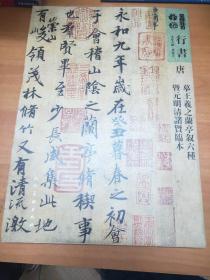 永和九年歲在癸丑暮春之初會
于會稽山陰之蘭亭脩稧事
也羣賢畢至少長咸集此地
有崇山峻領茂林脩竹又有清流激
行書
唐
摹王羲之蘭亭敘六種
暨元明清諸賢臨本